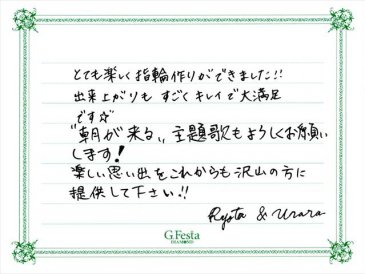 とても楽しく指輪作りができました!!
出来上がりも すごくキレイで大満足
です☆
"朝が来る„ 主題歌もよろしくお願い
します!
楽しい思い出をこれからも沢山の方に
提供して下さい!!
Ryota & Urara
G.Festa
DIAMOND